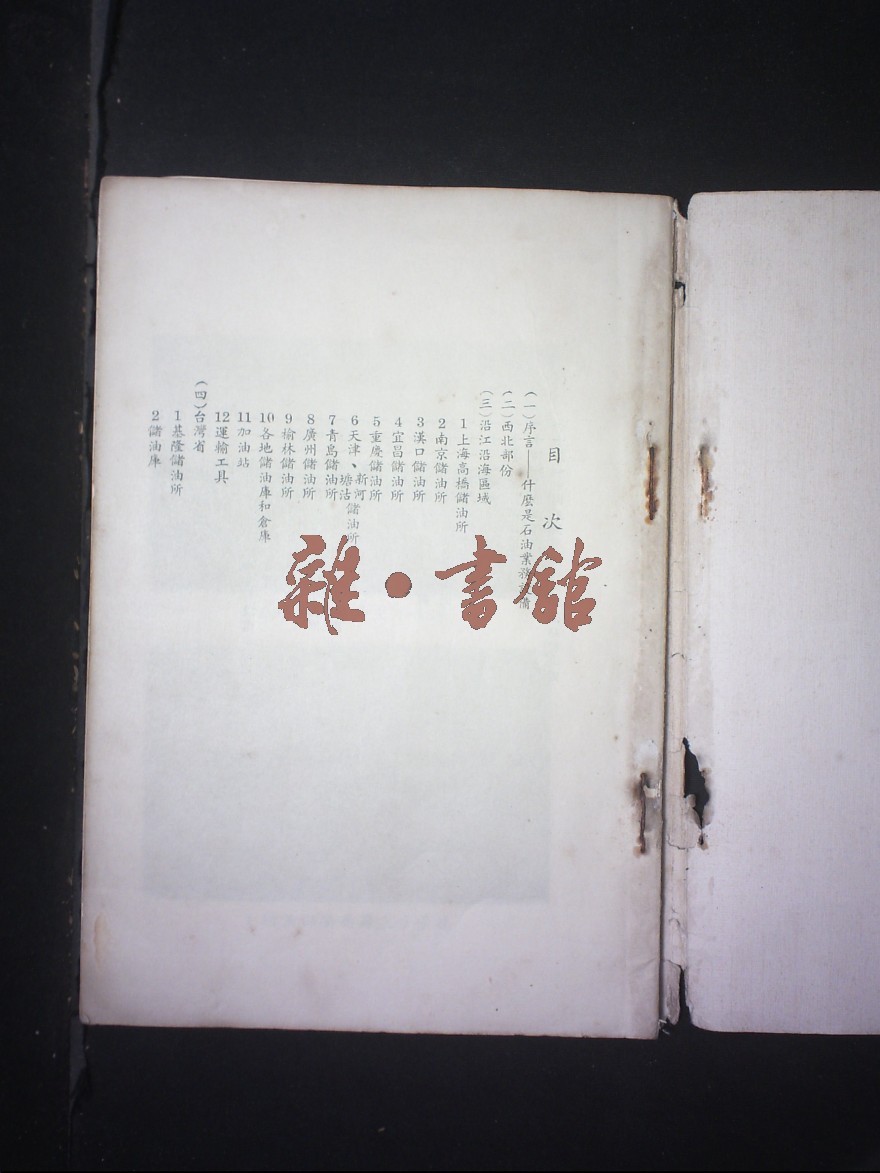 目次
(一)序言——什麼是石油業務設備
(二)西北部份
(三)沿江沿海區域
1上海高橋儲油所
2南京儲油所
3漢口儲油所
4宜昌儲油所
5重慶儲油所
6天津、新河塘沽儲油所
7青島儲油所
8廣州儲油所
9榆林儲油所
10各地儲油庫和倉庫
11加油站
12運輸工具
(四)台灣省
1基隆儲油所
2儲油庫
雜·書館